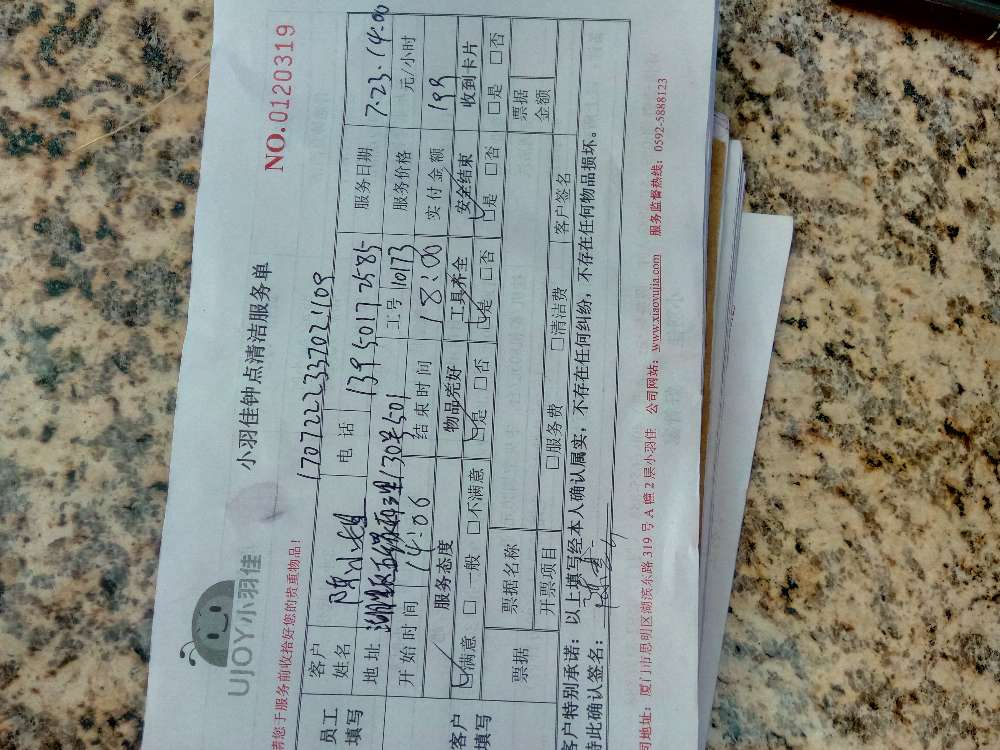 UJOY小羽佳
小羽佳钟点清洁服务单
NO.0120319
请您于服务前收拾好您的贵重物品!
170722233702109
员工填写
客户姓名 陈小姐 电话 139 5017 2585 服务日期 7.23.14:00
地址 130号501 工号 10173 服务价格 元/小时
开始时间 14:06 结束时间 18:00 实付金额 199
客户填写
服务态度 物品完好 工具齐全 安全结束 收到卡片
☑满意 □一般 □不满意 ☑是 □否 ☑是 □否 ☑是 □否 □是 □否
票据 票据名称 票据金额
开票项目 □服务费 □清洁费 客户签名
客户特别承诺:以上填写经本人确认属实,不存在任何纠纷,不存在任何物品损坏。
特此确认签名:
司地址:厦门市思明区湖滨东路319号A幢2层小羽佳 公司网站:www.xiaoyujia.com 服务监督热线:0592-5888123